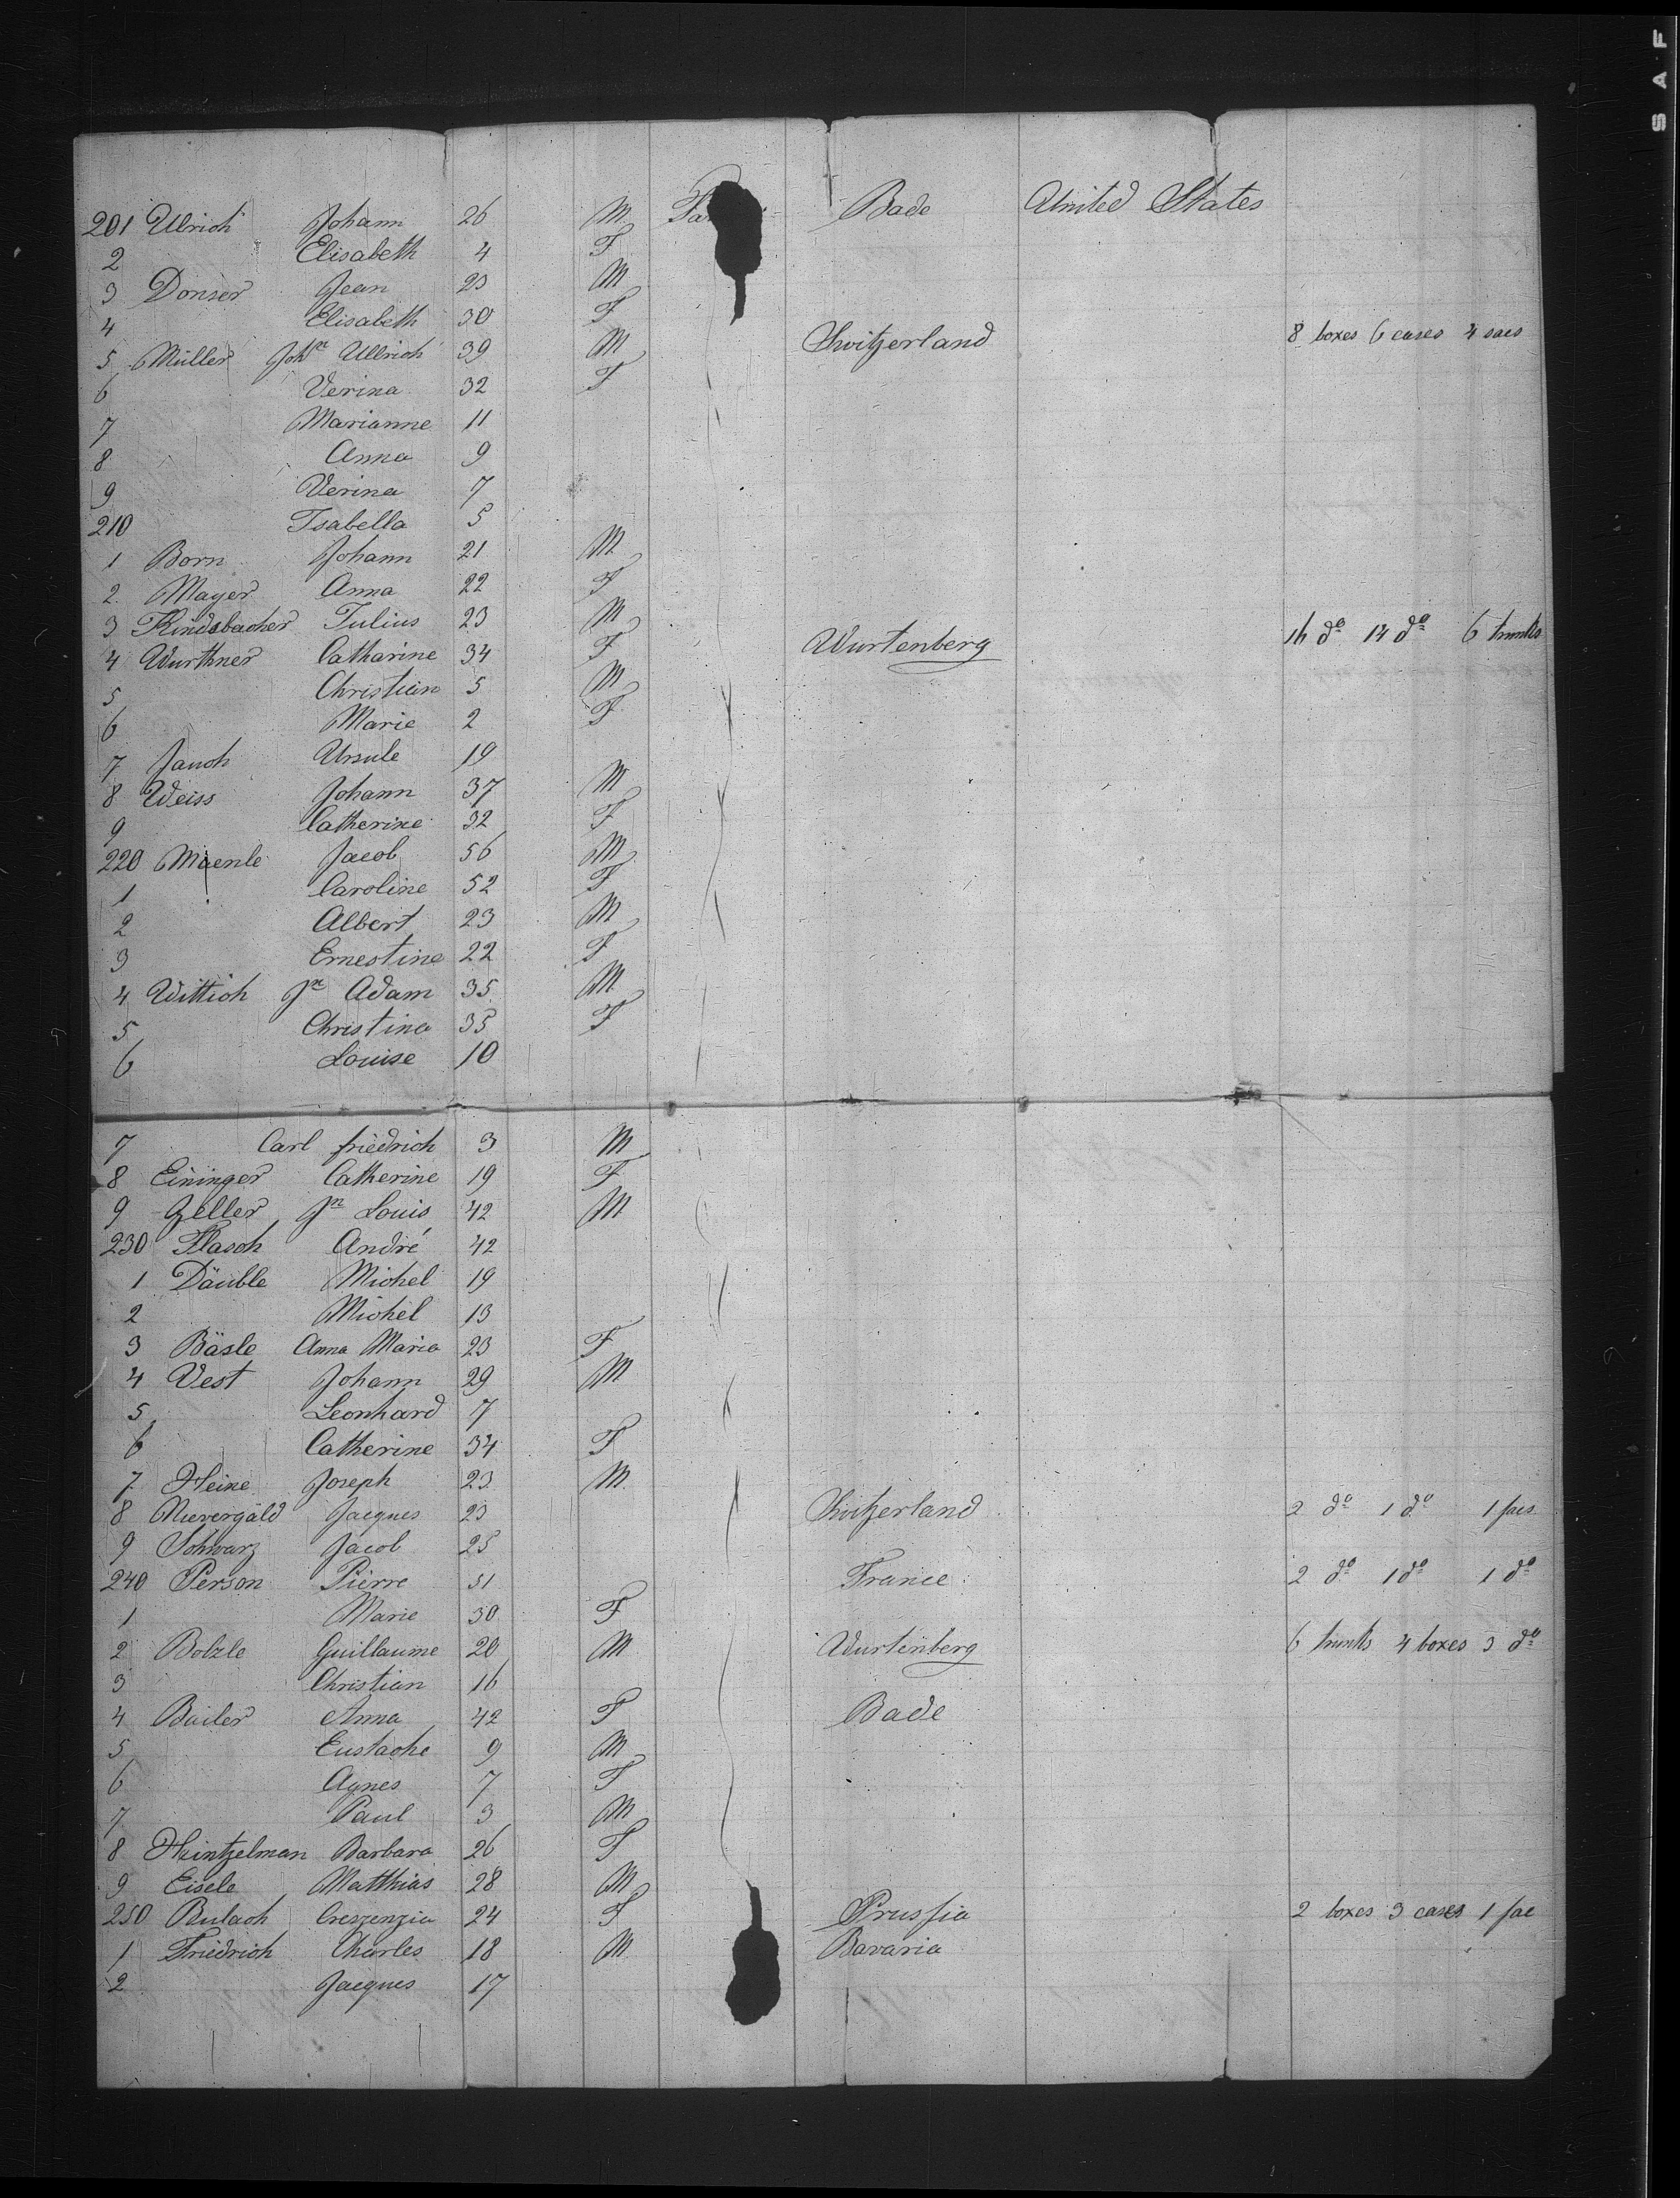 201 Ulrich Johann 26 M Bade United States
2 Elisabeth 4 F
3 Donser Jean 23 M
4 Elisabeth 30 F
5 Müller Johⁿ Ullrich 39 M Switzerland 8 boxes 6 cases 4 sacs
6 Verina 32 F
7 Marianne 11
8 Anna 9
9 Verina 7
210 Isabella 5
1 Born Johann 21 M
2 Mayer Anna 22 F
3 Kindsbacher Julius 23 M
4 Wurthner Catharine 34 F Wurtenberg 16 dº 14 dº 6 trunks
5 Christian 5 M
6 Marie 2 F
7 Jauch Ursule 19
8 Weiss Johann 37 M
9 Catherine 32 F
220 Maenle Jacob 56 M
1 Caroline 52 F
2 Albert 23 M
3 Ernestine 22 F
4 Wittich Jⁿ Adam 35 M
5 Christina 35 F
6 Louise 10
7 Carl friedrich 3 M
8 Eininger Catherine 19 F
9 Zeller Jⁿ Louis 42 M
230 Flasch André 42
1 Däuble Michel 19
2 Michel 13
3 Bäsle Anna Maria 23 F
4 Vest Johann 29 M
5 Leonhard 7
6 Catherine 34 F
7 Heine Joseph 23 M
8 Nievergäld Jacques 23 Switzerland 2 dº 1 dº 1 sacs
9 Schwarz Jacob 25
240 Person Pierre 31 France 2 dº 1 dº 1 dº
1 Marie 30 F
2 Bolzle Guillaume 20 M Wurtenberg 6 trunks 4 boxes 3 dº
3 Christian 16
4 Bailer Anna 42 F Bade
5 Eustache 9 M
6 Agnes 7 F
7 Paul 3 M
8 Heintzelman Barbara 26 F
9 Eisele Matthias 28 M
250 Bulach Creszenzia 24 F Prussia 2 boxes 3 cases 1 sac
1 Friedrich Charles 18 M Bavaria
2 Jacques 17
S A F